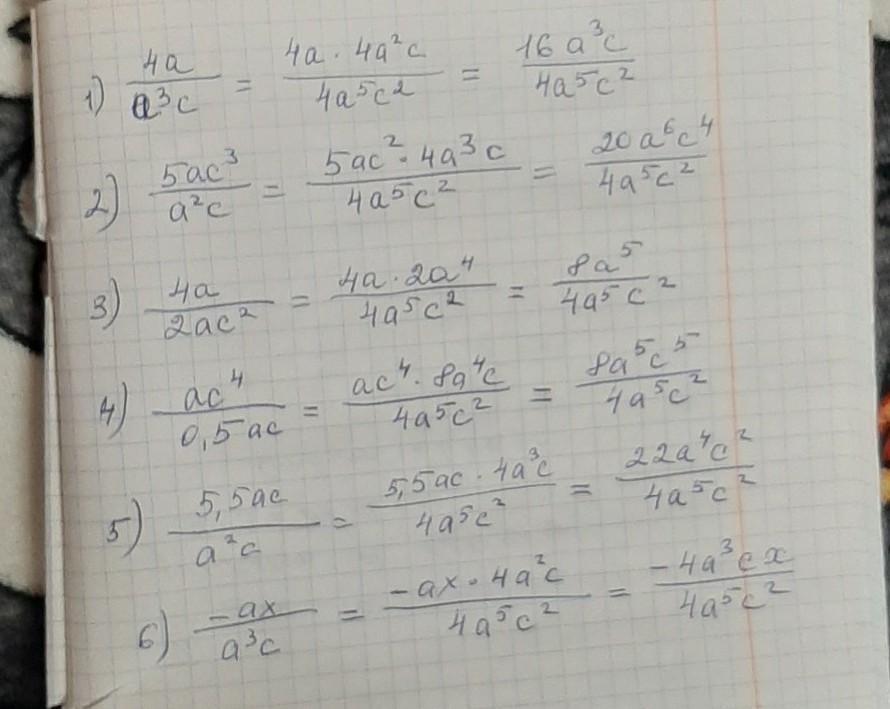 1) 4a/a³c = 4a · 4a²c/4a⁵c² = 16a³c/4a⁵c²
2) 5ac³/a²c = 5ac² · 4a³c/4a⁵c² = 20a⁶c⁴/4a⁵c²
3) 4a/2ac² = 4a · 2a⁴/4a⁵c² = 8a⁵/4a⁵c²
4) ac⁴/0,5ac = ac⁴ · 8a⁴c/4a⁵c² = 8a⁵c⁵/4a⁵c²
5) 5,5ac/a²c = 5,5ac · 4a³c/4a⁵c² = 22a⁴c²/4a⁵c²
6) -ax/a³c = -ax · 4a²c/4a⁵c² = -4a³cx/4a⁵c²